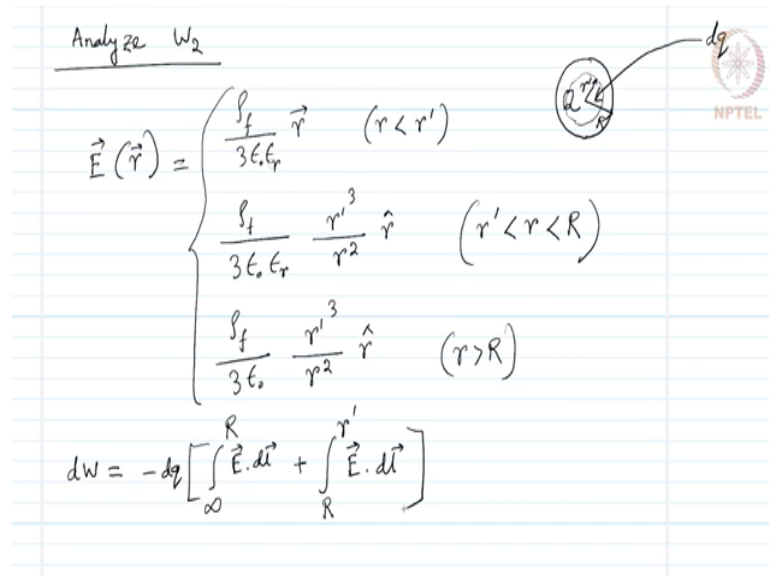 Analyze W₂
dq
Q r' R
NPTEL
E⃗(r⃗) = { ρ_f / 3ϵ₀ϵᵣ r⃗ (r < r')
ρ_f / 3ϵ₀ϵᵣ r'³ / r² r̂ (r' < r < R)
ρ_f / 3ϵ₀ r'³ / r² r̂ (r > R)
dW = -dq [ ∫_∞^R E⃗.dl⃗ + ∫_R^r' E⃗.dl⃗ ]